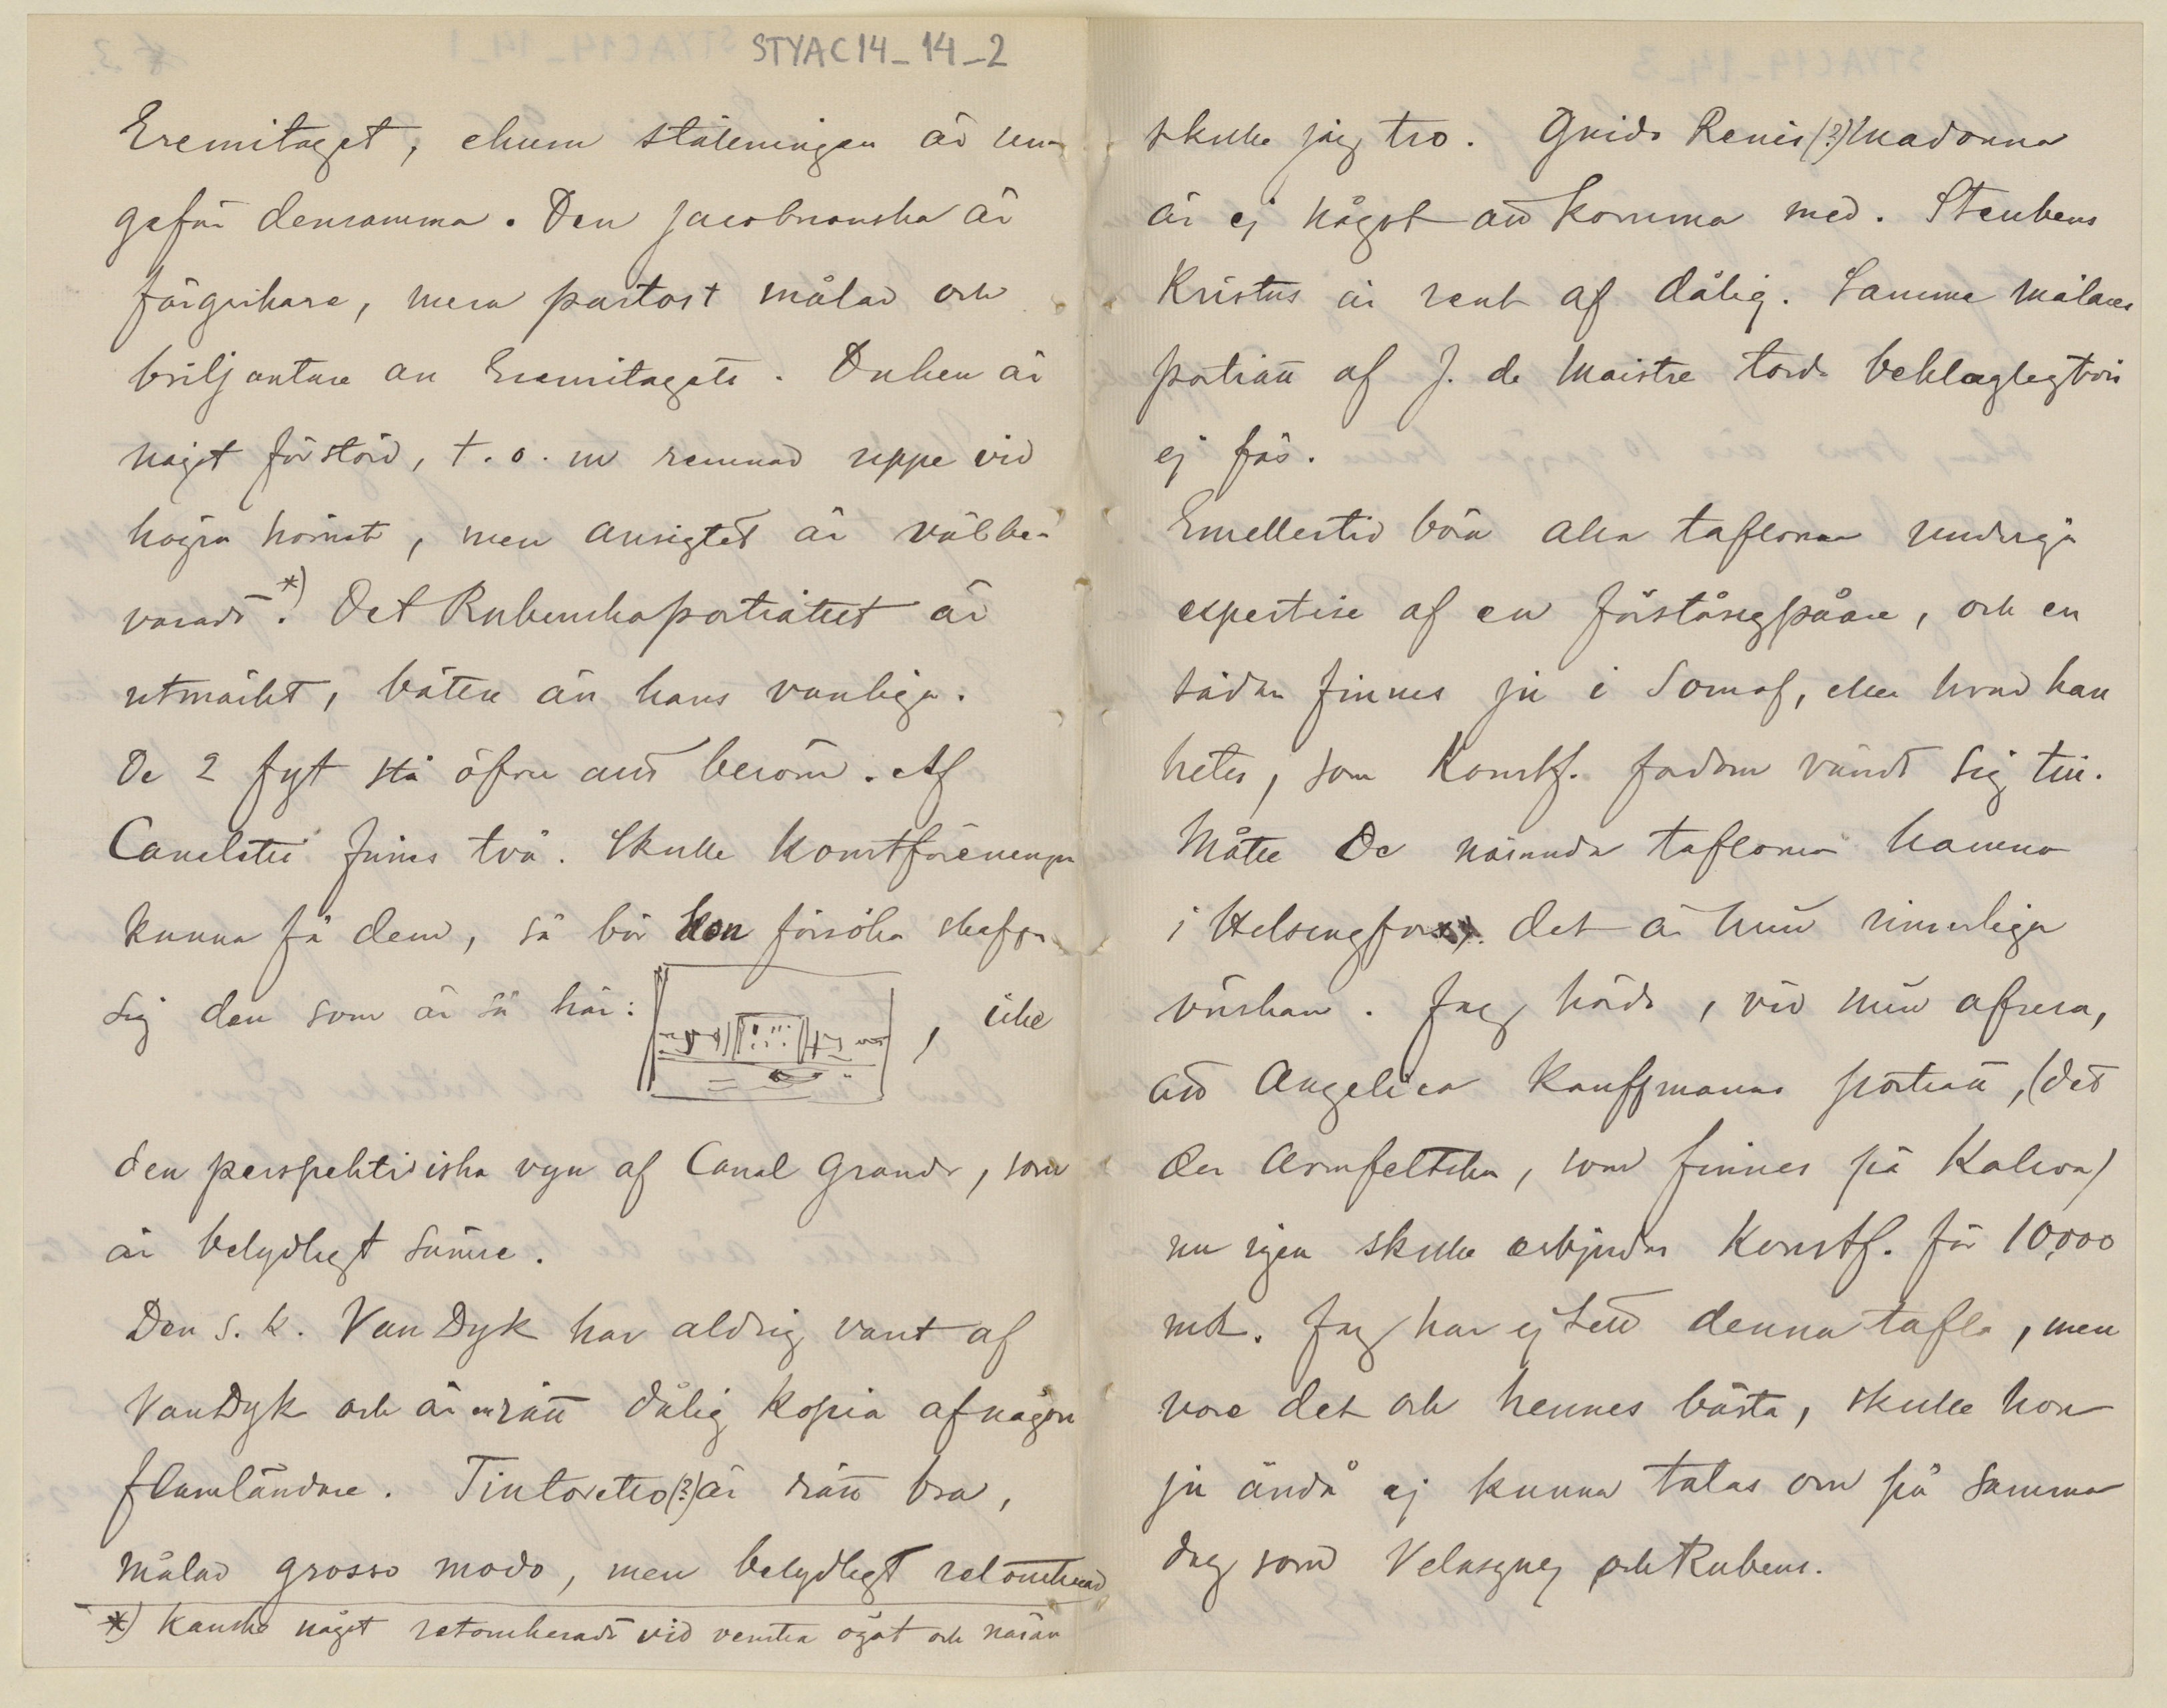 STYAC14_14_2
Eremitaget, ehuru ställningen är un-
gefär densamma. Den jacobinanska är
färgrikare, mera pastost målad och
briljantare än Eremitagets. Duken är
något förstörd, t. o. m remnad uppe vid
högra hörnet, men ansigtet är välbe-
varadt.*) Det Rubenska porträttet är
utmärkt, bättre än hans vanliga.
De 2 Fyt stå öfver allt beröm. Af
Canaletti finnes två. Skulle Konstföreningen
kunna få dem, så bör hon försöka skaffa
sig den som är så här: , icke
den perspektiviska vyn af Canal Grande, som
är betydligt sämre.
Den s. k. Van Dyk har aldrig varit af
Van Dyk och är en rätt dålig kopia af någon
flamländare. Tintoretto (?) är rätt bra,
målad grosso modo, men betydligt retoucherad
*) Kanske något retoucheradt vid venstra ögat och näsan
skulle jag tro. Guido Renis (?) Madonna
är ej något att komma med. Steubens
Kristus är rent af dålig. Samma målares
porträtt af J. de Maistre torde beklagligtvis
ej fås.
Emellertid böra alla taflorna undergå
expertise af en förståsigpåare, och en
sådan finnes ju i Somof, eller hvad han
heter, som Konstf. fordom vändt sig till.
Måtte de nämnda taflorna hamna
i Helsingfors, det är min innerliga
önskan. Jag hörde, vid min afresa,
att Angelica Kauffmanns porträtt, (det
der Armfeltska, som finnes på Kalvoa)
nu igen skulle erbjudas Konstf. för 10,000
mk. Jag har ej sett denna tafla, men
vore det och hennes bästa, skulle hon
ju ändå ej kunna talas om på samma
dag som Velasquez och Rubens.